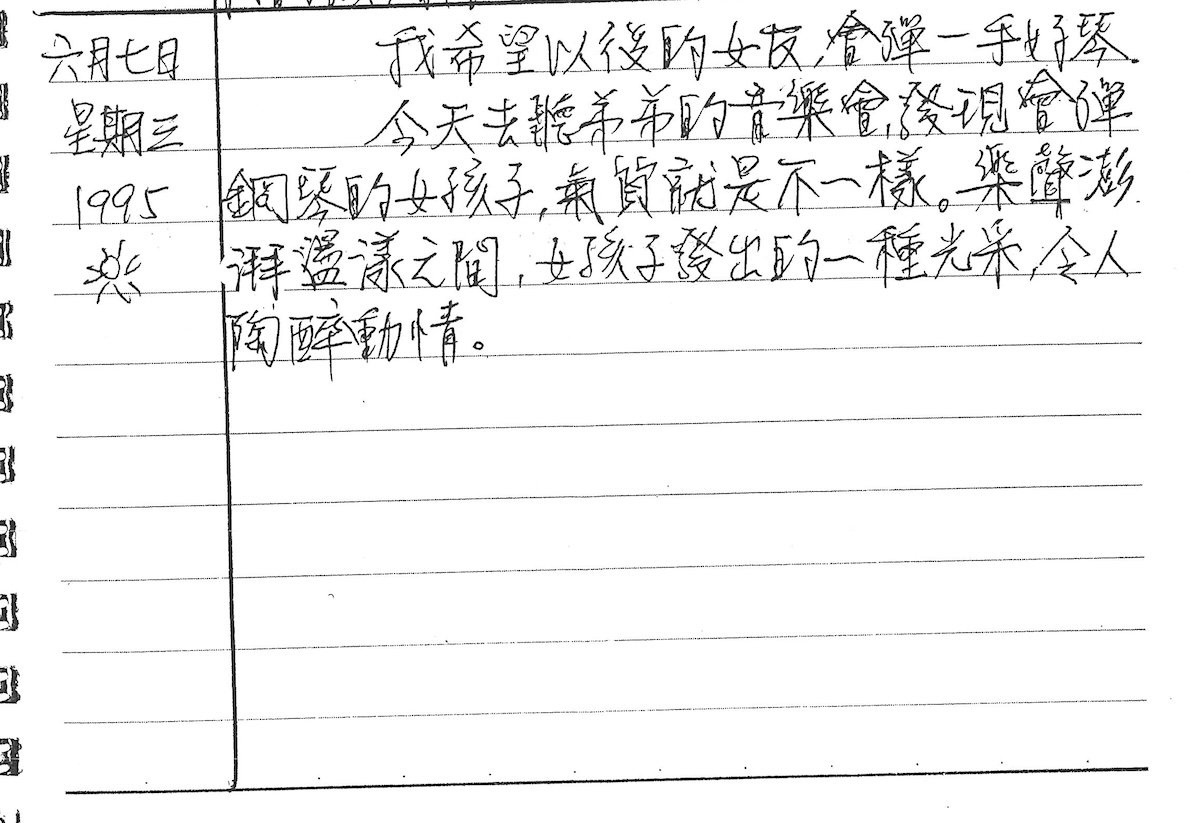 六月七日
星期三
1995
我希望以後的女友,會彈一手好琴.
今天去聽弟弟的音樂會,發現會彈
鋼琴的女孩子,氣質就是不一樣。樂聲澎
湃盪漾之間,女孩子發出的一種光采,令人
陶醉動情。